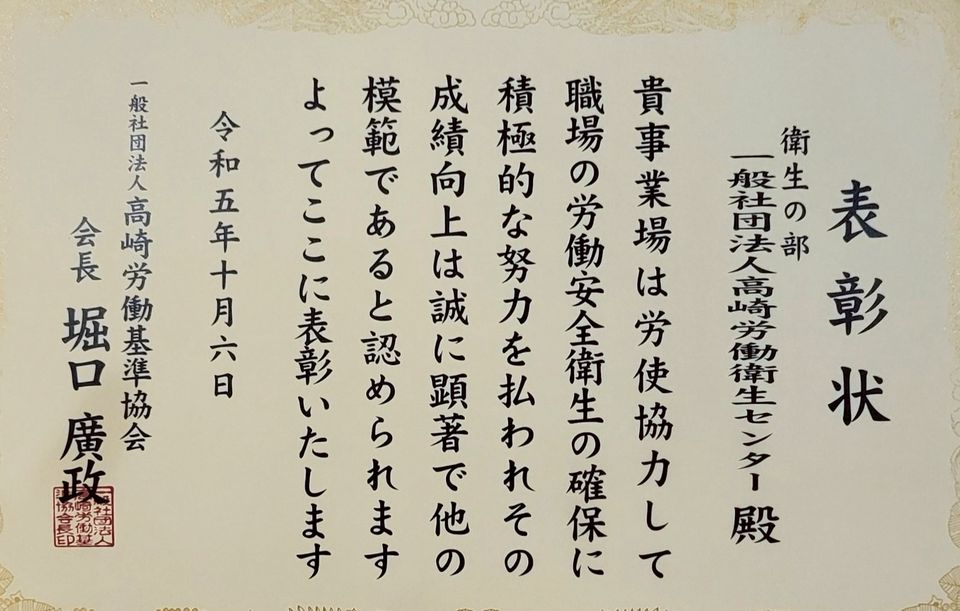 表彰状
衛生の部
一般社団法人高崎労働衛生センター 殿
貴事業場は労使協力して
職場の労働安全衛生の確保に
積極的な努力を払われその
成績向上は誠に顕著で他の
模範であると認められます
よってここに表彰いたします
令和五年十月六日
一般社団法人高崎労働基準協会
会長 堀口 廣政
一般社団法人
高崎労働基
準協会長印